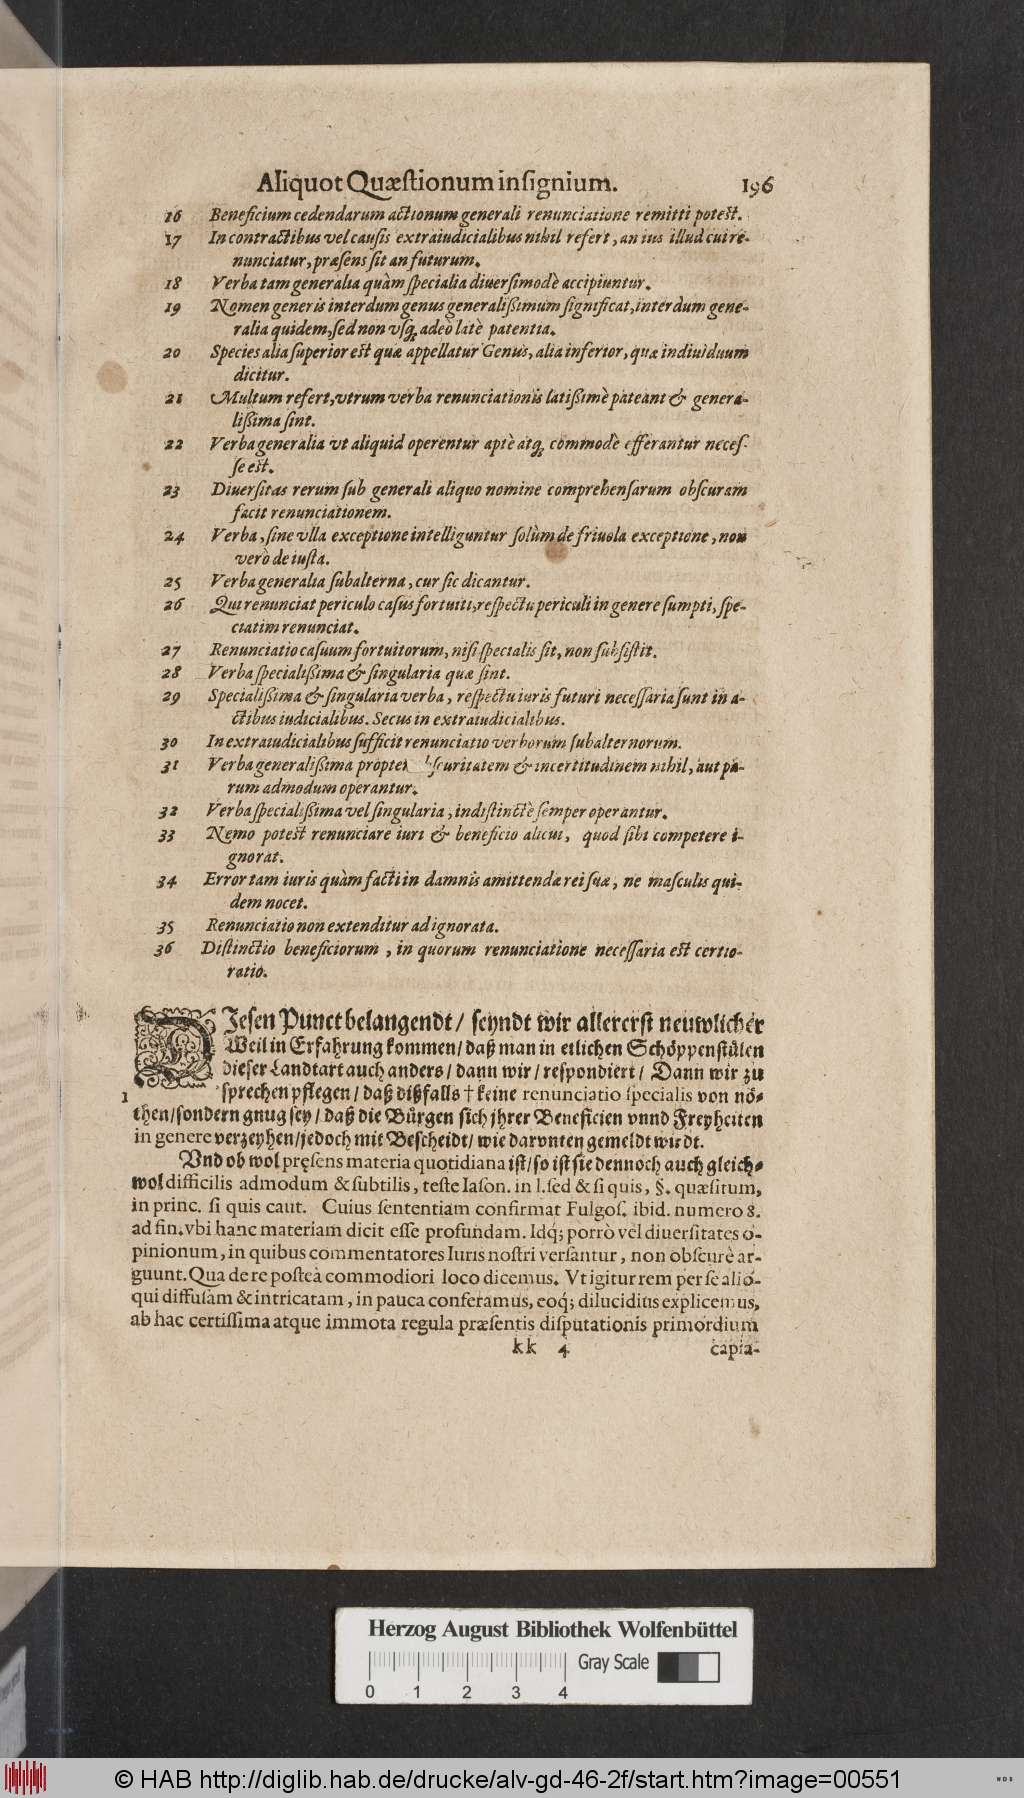 Aliquot Quæſtionum inſignium. 196
16 Beneficium cedendarum actionum generali renunciatione remitti poteſt.
17 In contractibus vel cauſis extraiudicialibus nihil refert, an ius illud cui re-
nunciatur, præſens ſit an futurum.
18 Verba tam generalia quàm ſpecialia diuerſimodè accipiuntur.
19 Nomen generis interdum genus generalißimum ſignificat, interdum gene-
ralia quidem, ſed non vſq; adeò latè patentia.
20 Species alia ſuperior eſt quæ appellatur Genus, alia inferior, quæ indiuiduum
dicitur.
21 Multum refert, vtrum verba renunciationis latißimè pateant & genera-
lißima ſint.
22 Verba generalia vt aliquid operentur aptè atq; commodè efferantur neceſ-
ſe eſt.
23 Diuerſitas rerum ſub generali aliquo nomine comprehenſarum obſcuram
facit renunciationem.
24 Verba, ſine vlla exceptione intelliguntur ſolùm de friuola exceptione, non
verò de iuſta.
25 Verba generalia ſubalterna, cur ſic dicantur.
26 Qui renunciat periculo caſus fortuiti, reſpectu periculi in genere ſumpti, ſpe-
ciatim renunciat.
27 Renunciatio caſuum fortuitorum, niſi ſpecialis ſit, non ſubſiſtit.
28 Verba ſpecialißima & ſingularia quæ ſint.
29 Specialißima & ſingularia verba, reſpectu iuris futuri neceſſaria ſunt in a-
ctibus iudicialibus. Secus in extraiudicialibus.
30 In extraiudicialibus ſufficit renunciatio verborum ſubalternorum.
31 Verba generalißima propter obſcuritatem & incertitudinem nihil, aut pa-
rum admodum operantur.
32 Verba ſpecialißima vel ſingularia, indiſtinctè ſemper operantur.
33 Nemo poteſt renunciare iuri & beneficio alicui, quod ſibi competere i-
gnorat.
34 Error tam iuris quàm facti in damnis amittendæ rei ſuæ, ne maſculis qui-
dem nocet.
35 Renunciatio non extenditur ad ignorata.
36 Diſtinctio beneficiorum, in quorum renunciatione neceſſaria eſt certio-
ratio.
DIeſen Punct belangendt / ſeyndt wir allererſt neuwlicher
Weil in Erfahrung kommen / daß man in etlichen Schöppenſtülen
dieſer Landtart auch anders / dann wir / reſpondiert / Dann wir zu
1 ſprechen pflegen / daß dißfalls † keine renunciatio ſpecialis von nö-
then / ſondern gnug ſey / daß die Bürgen ſich jhrer Beneficien vnnd Freyheiten
in genere verzeyhen / jedoch mit Beſcheidt / wie darvnten gemeldt wirdt.
Vnd ob wol pręſens materia quotidiana iſt / ſo iſt ſie dennoch auch gleich-
wol difficilis admodum & ſubtilis, teſte Iaſon. in l. ſed & ſi quis, §. quæſitum,
in princ. ſi quis caut. Cuius ſententiam confirmat Fulgoſ. ibid. numero 8.
ad fin. vbi hanc materiam dicit eſſe profundam. Idq́; porrò vel diuerſitates o-
pinionum, in quibus commentatores Iuris noſtri verſantur, non obſcurè ar-
guunt. Qua de re poſteà commodiori loco dicemus. Vt igitur rem per ſe alió-
qui diffuſam & intricatam, in pauca conferamus, eoq́; dilucidiùs explicemus,
ab hac certiſſima atque immota regula præſentis diſputationis primordium
kk 4 capia-
Herzog August Bibliothek Wolfenbüttel
Gray Scale
0 1 2 3 4
© HAB http://diglib.hab.de/drucke/alv-gd-46-2f/start.htm?image=00551